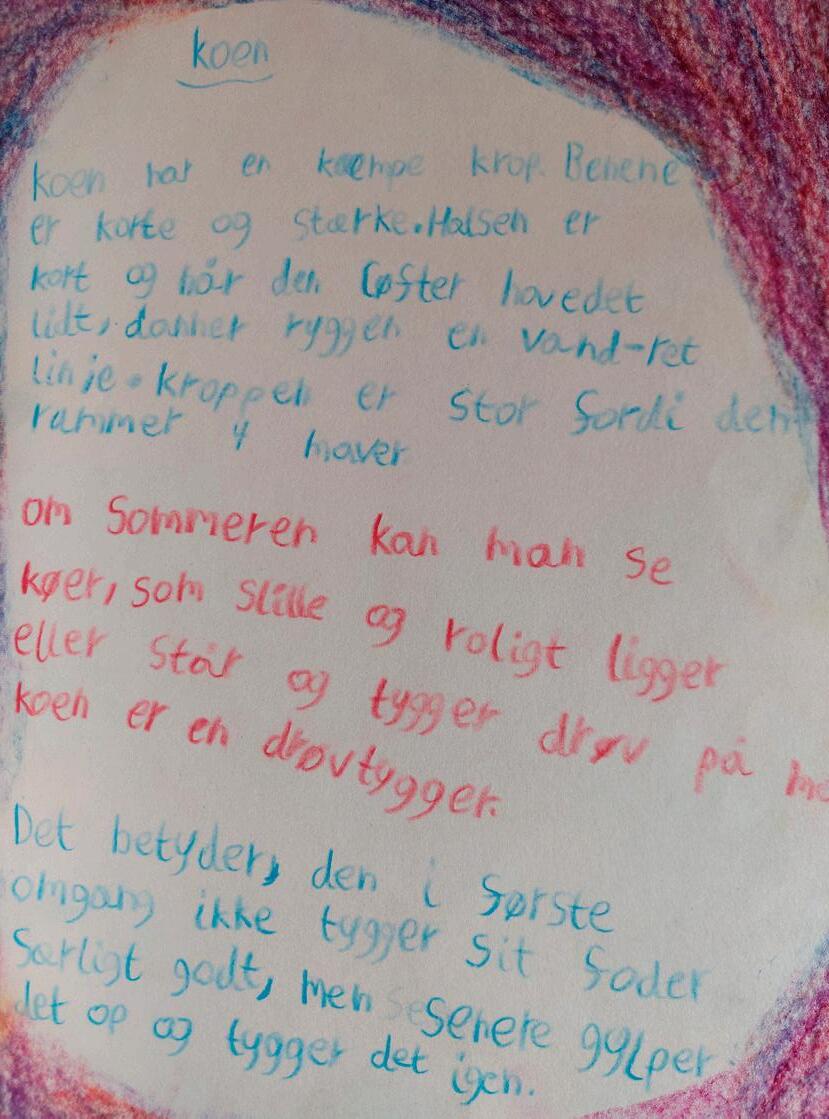 koen
koen har en kæmpe krop. Benene
er korte og stærke. Halsen er
kort og når den løfter hovedet
lidt, danner ryggen en vand-ret
linje. kroppen er stor fordi den
rammer 4 maver
om Sommeren kan man se
køer, som stille og roligt ligger
eller står og tygger drøv på
koen er en drøvtygger.
Det betyder, den i første
omgang ikke tygger sit foder
særligt godt, men senere gylper
det op og tygger det igen.